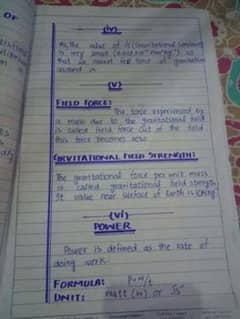 OF
(iv)
As, the value of G (Gravitational Constant)
is very small (6.67×10⁻¹¹ Nm²kg⁻²) so
that we cannot feel force of gravitation
around us
(v)
FIELD FORCE:
The force experienced by
a mass due to the gravitational field
is called field force out of the field
this force becomes zero.
GRVITATIONAL FIELD STRENGTH:
The gravitational force per unit mass
is called gravitational field strength
It value near surface of Earth is 10N/kg
(vi)
POWER
Power is defined as the rate of
doing work.
FORMULA: P=W/t
UNIT: Watt (W) or JS⁻¹